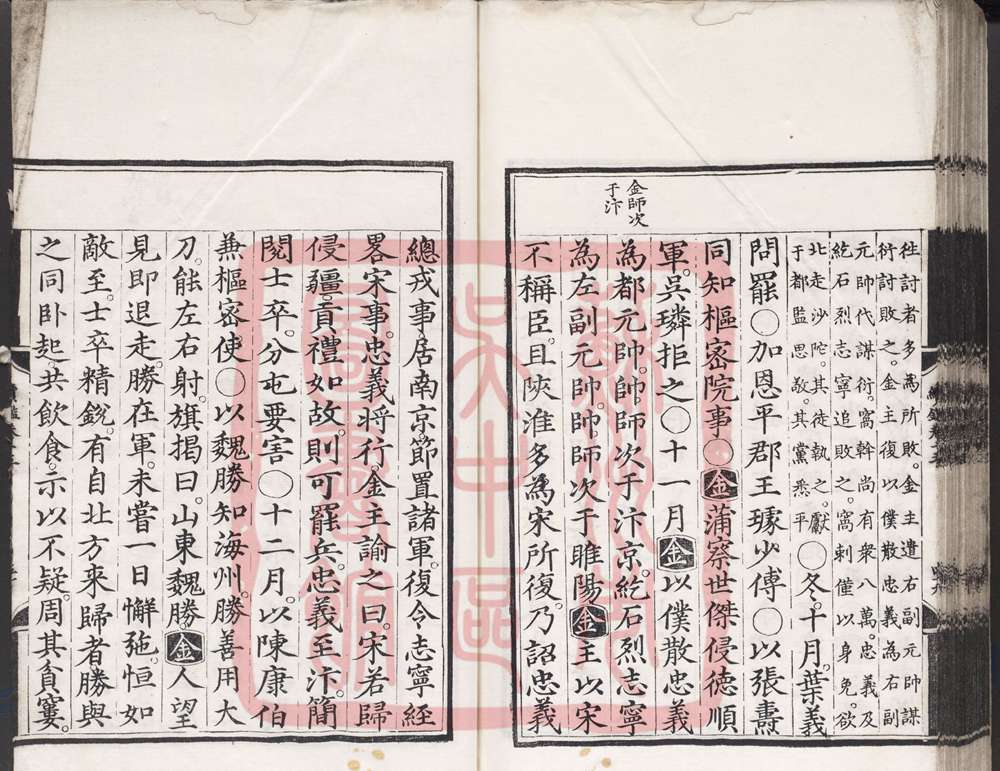 往討者多為所敗金主遣右副元帥謀
衍討敗之金主復以僕散忠義為右副
元帥代謀衍窩幹尚有衆八萬忠義及
紇石烈志寧追敗之窩剌僅以身免欲
北走沙陀其徒執之獻
于都監思敬其黨悉平
○冬十月葉義
問罷○加恩平郡王璩少傅○以張燾
同知樞密院事○金蒲察世傑侵德順
軍吳璘拒之○十一月金以僕散忠義
為都元帥帥師次于汴京紇石烈志寧
為左副元帥帥師次于睢陽金主以宋
不稱臣且陜淮多為宋所復乃詔忠義
金師次
于汴
總戎事居南京節置諸軍復令志寧經
畧宋事忠義將行金主諭之曰宋若歸
侵疆貢禮如故則可罷兵忠義至汴簡
閱士卒分屯要害○十二月以陳康伯
兼樞密使○以魏勝知海州勝善用大
刀能左右射旗揭曰山東魏勝金人望
見即退走勝在軍未嘗一日懈弛恒如
敵至士卒精銳有自北方來歸者勝與
之同卧起共飲食示以不疑周其貧窶